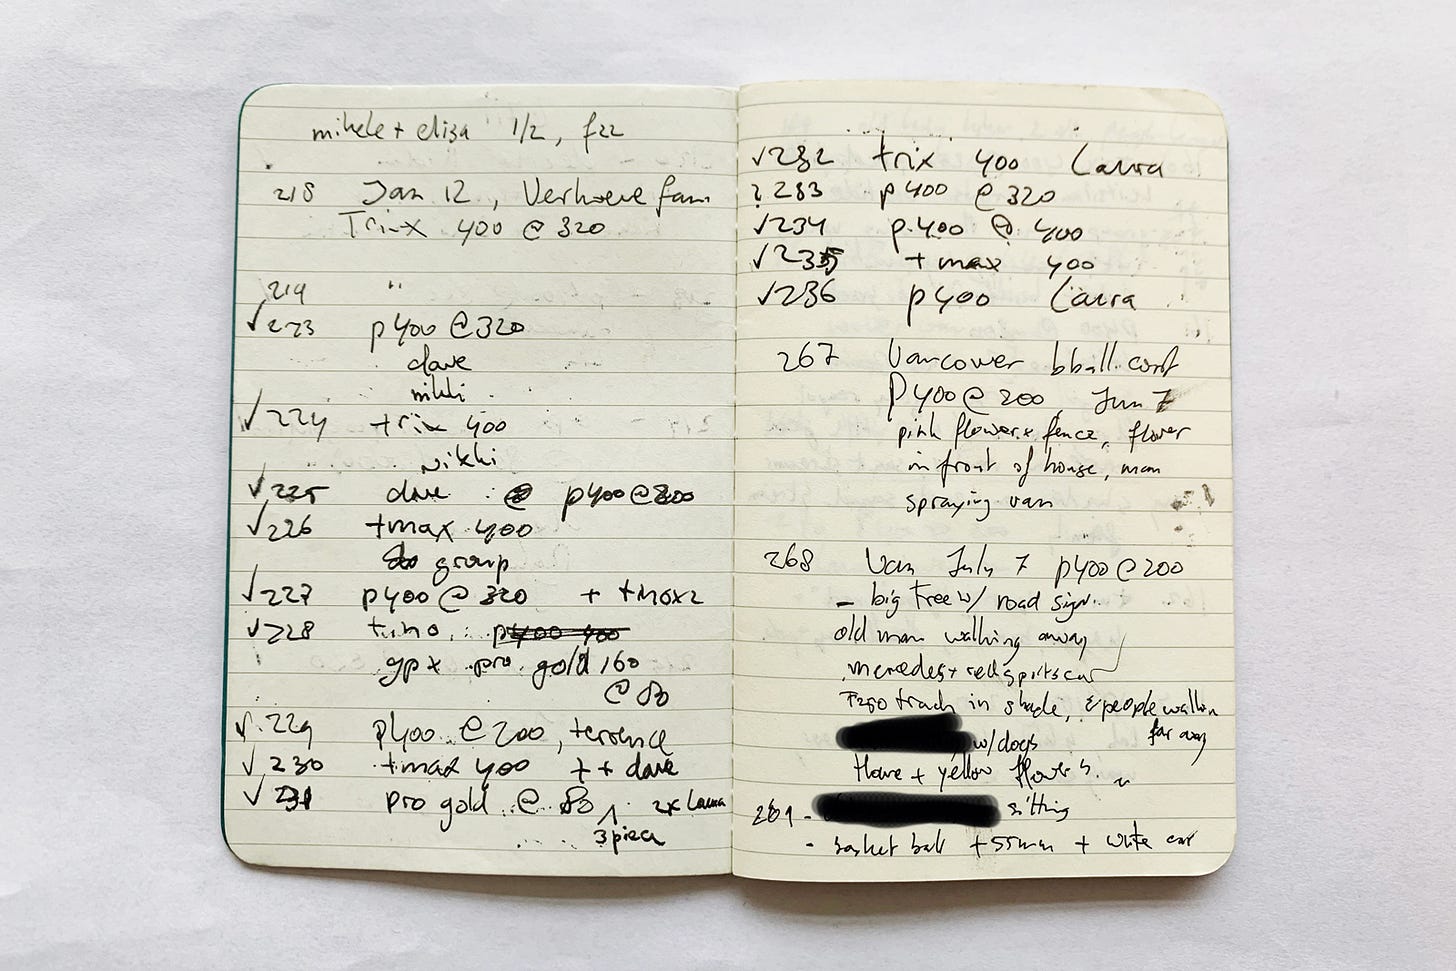 mihele + eliza 1/2, f22
218 Jan 12, Verhoeve fam
Tri-x 400 @ 320
219 "
√223 p400 @ 320
dave
nikki
√224 trix 400
Nikki
√225 dave @ p400 @ 200
√226 tmax 400
group
√227 p400 @ 320 + tmax 2
√228 p400 400
gpx pro gold 160
@ 80
√229 p400 @ 200, terrence
√230 tmax 400 ++ dave
√231 pro gold @ 80 2x Laura
3 piece
√232 trix 400 Laura
? 233 p400 @ 320
√234 p400 @ 400
√235 tmax 400
√236 p400 Laura
267 Vancower bball court
P400 @ 200 Jun 7
pink flower + fence, flower
in front of house, man
spraying van
268 Van July 7 p400 @ 200
- big tree w/ road sign
old man walking away
mercedes + red sportscar
F250 truck in shade, 2 people walkin
far away
w/ dogs
+ yellow flowers.
269 - sitting
- basket ball + 55mm + white car